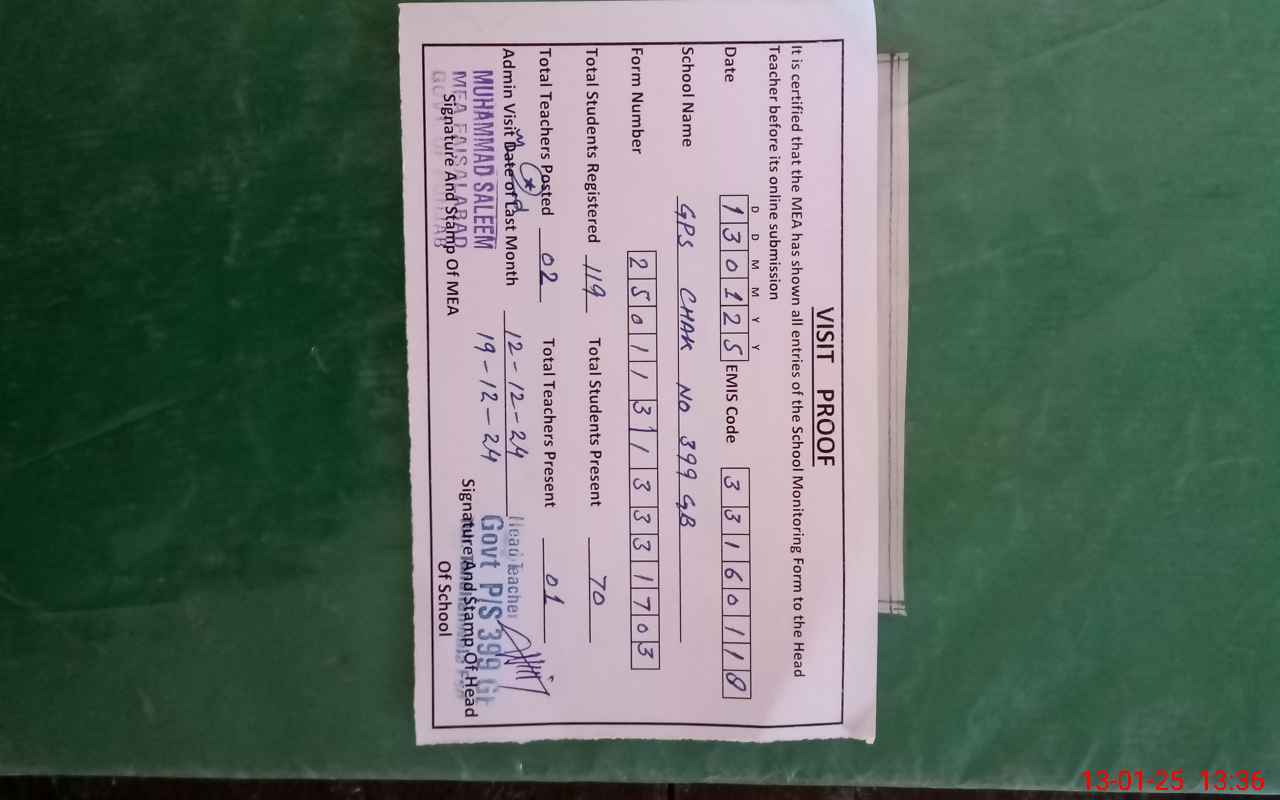 VISIT PROOF
It is certified that the MEA has shown all entries of the School Monitoring Form to the Head
Teacher before its online submission
D D M M Y Y
Date 130125 EMIS Code 33160118
School Name GPS CHAK NO 399 GB
Form Number 250113133331703
Total Students Registered 119 Total Students Present 70
Total Teachers Posted 02 Total Teachers Present 01
Admin Visit Date of Last Month 12-12-24
19-12-24
MUHAMMAD SALEEM
MEA FAISALABAD
Signature And Stamp Of MEA
Head Teacher
Govt P/S 399 G
Signature And Stamp Of Head
Of School
13-01-25 13:36